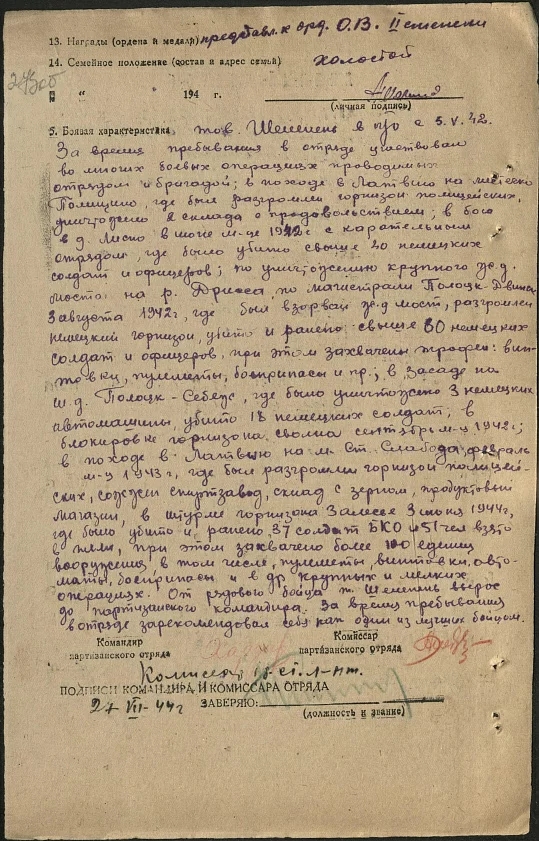 13. Награды (ордена и медали) представл. к орд. О.В. II степени
14. Семейное положение (состав и адрес семьи) холостой
" " 194 г.
(личная подпись)
5. Боевая характеристика, тов. Шемпень в п/о с 5.V.42.
За время пребывания в отряде участвовал
во многих боевых операциях проводимых
отрядом и бригадой; в походе в Латвию на
где был разгромлен горнизон полицейских,
уничтожено 2 склада с продовольствием; в бою
в д. в м-це 1942 г с карательным
отрядом, где было убито свыше 20 немецких
солдат и офицеров; по уничтожению крупного ж.д.
моста на р. Дрисса, по магистрали Полоцк-Двинск
3 августа 1942 г, где был взорван ж.д мост, разгромлен
немецкий горнизон, убито и ранено свыше 80 немецких
солдат и офицеров, при этом захвачены трофеи: вин-
товки, пулеметы, боеприпасы и пр.; в засаде на
ш.д. Полоцк-Себеж, где было уничтожено 3 немецких
автомашины, убито 18 немецких солдат; в
блокировке горнизона сентябрь м-ц 1942 г;
в походе в Латвию на м. Ст. Слабода, февраль
м-ц 1943 г, где был разгромлен горнизон полицей-
ских, сожжен спиртзавод, склад с зерном, продуктовый
магазин, в штурме горнизона Залесье 3 1944 г,
где было убито и ранено 37 солдат БКО и 51 чел взято
в плен, при этом захвачено более 100 единиц
вооружения, в том числе, пулеметы, винтовки, авто-
маты, боеприпасы и в др. крупных и мелких
операциях. От рядового бойца т. вырос
до партизанского командира. За время пребывания
в отряде зарекомендовал себя как один из лучших бойцом.
Командир партизанского отряда
Комиссар партизанского отряда
Комиссар ст. л-нт.
ПОДПИСИ КОМАНДИРА И КОМИССАРА ОТРЯДА
27 VII-44 г ЗАВЕРЯЮ:
(должность и звание)